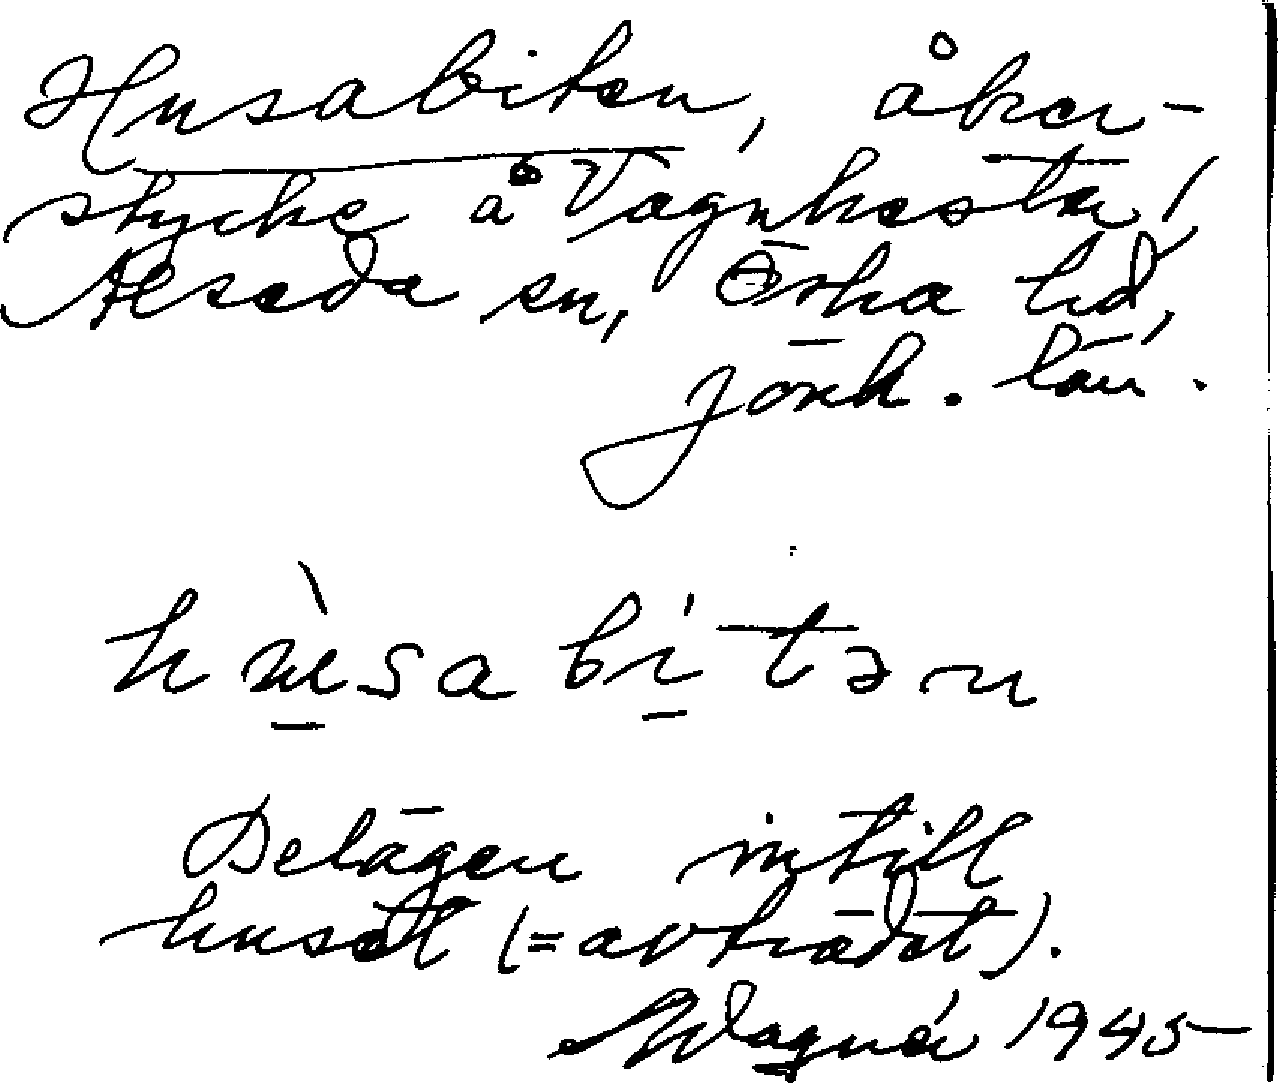 Husabiten, åker-
stycke å Vagnhester,
Alseda sn, Östra hd,
Jönk. län.
hùsabitən
Belägen intill
huset (= avträdet).
Wagnér 1945